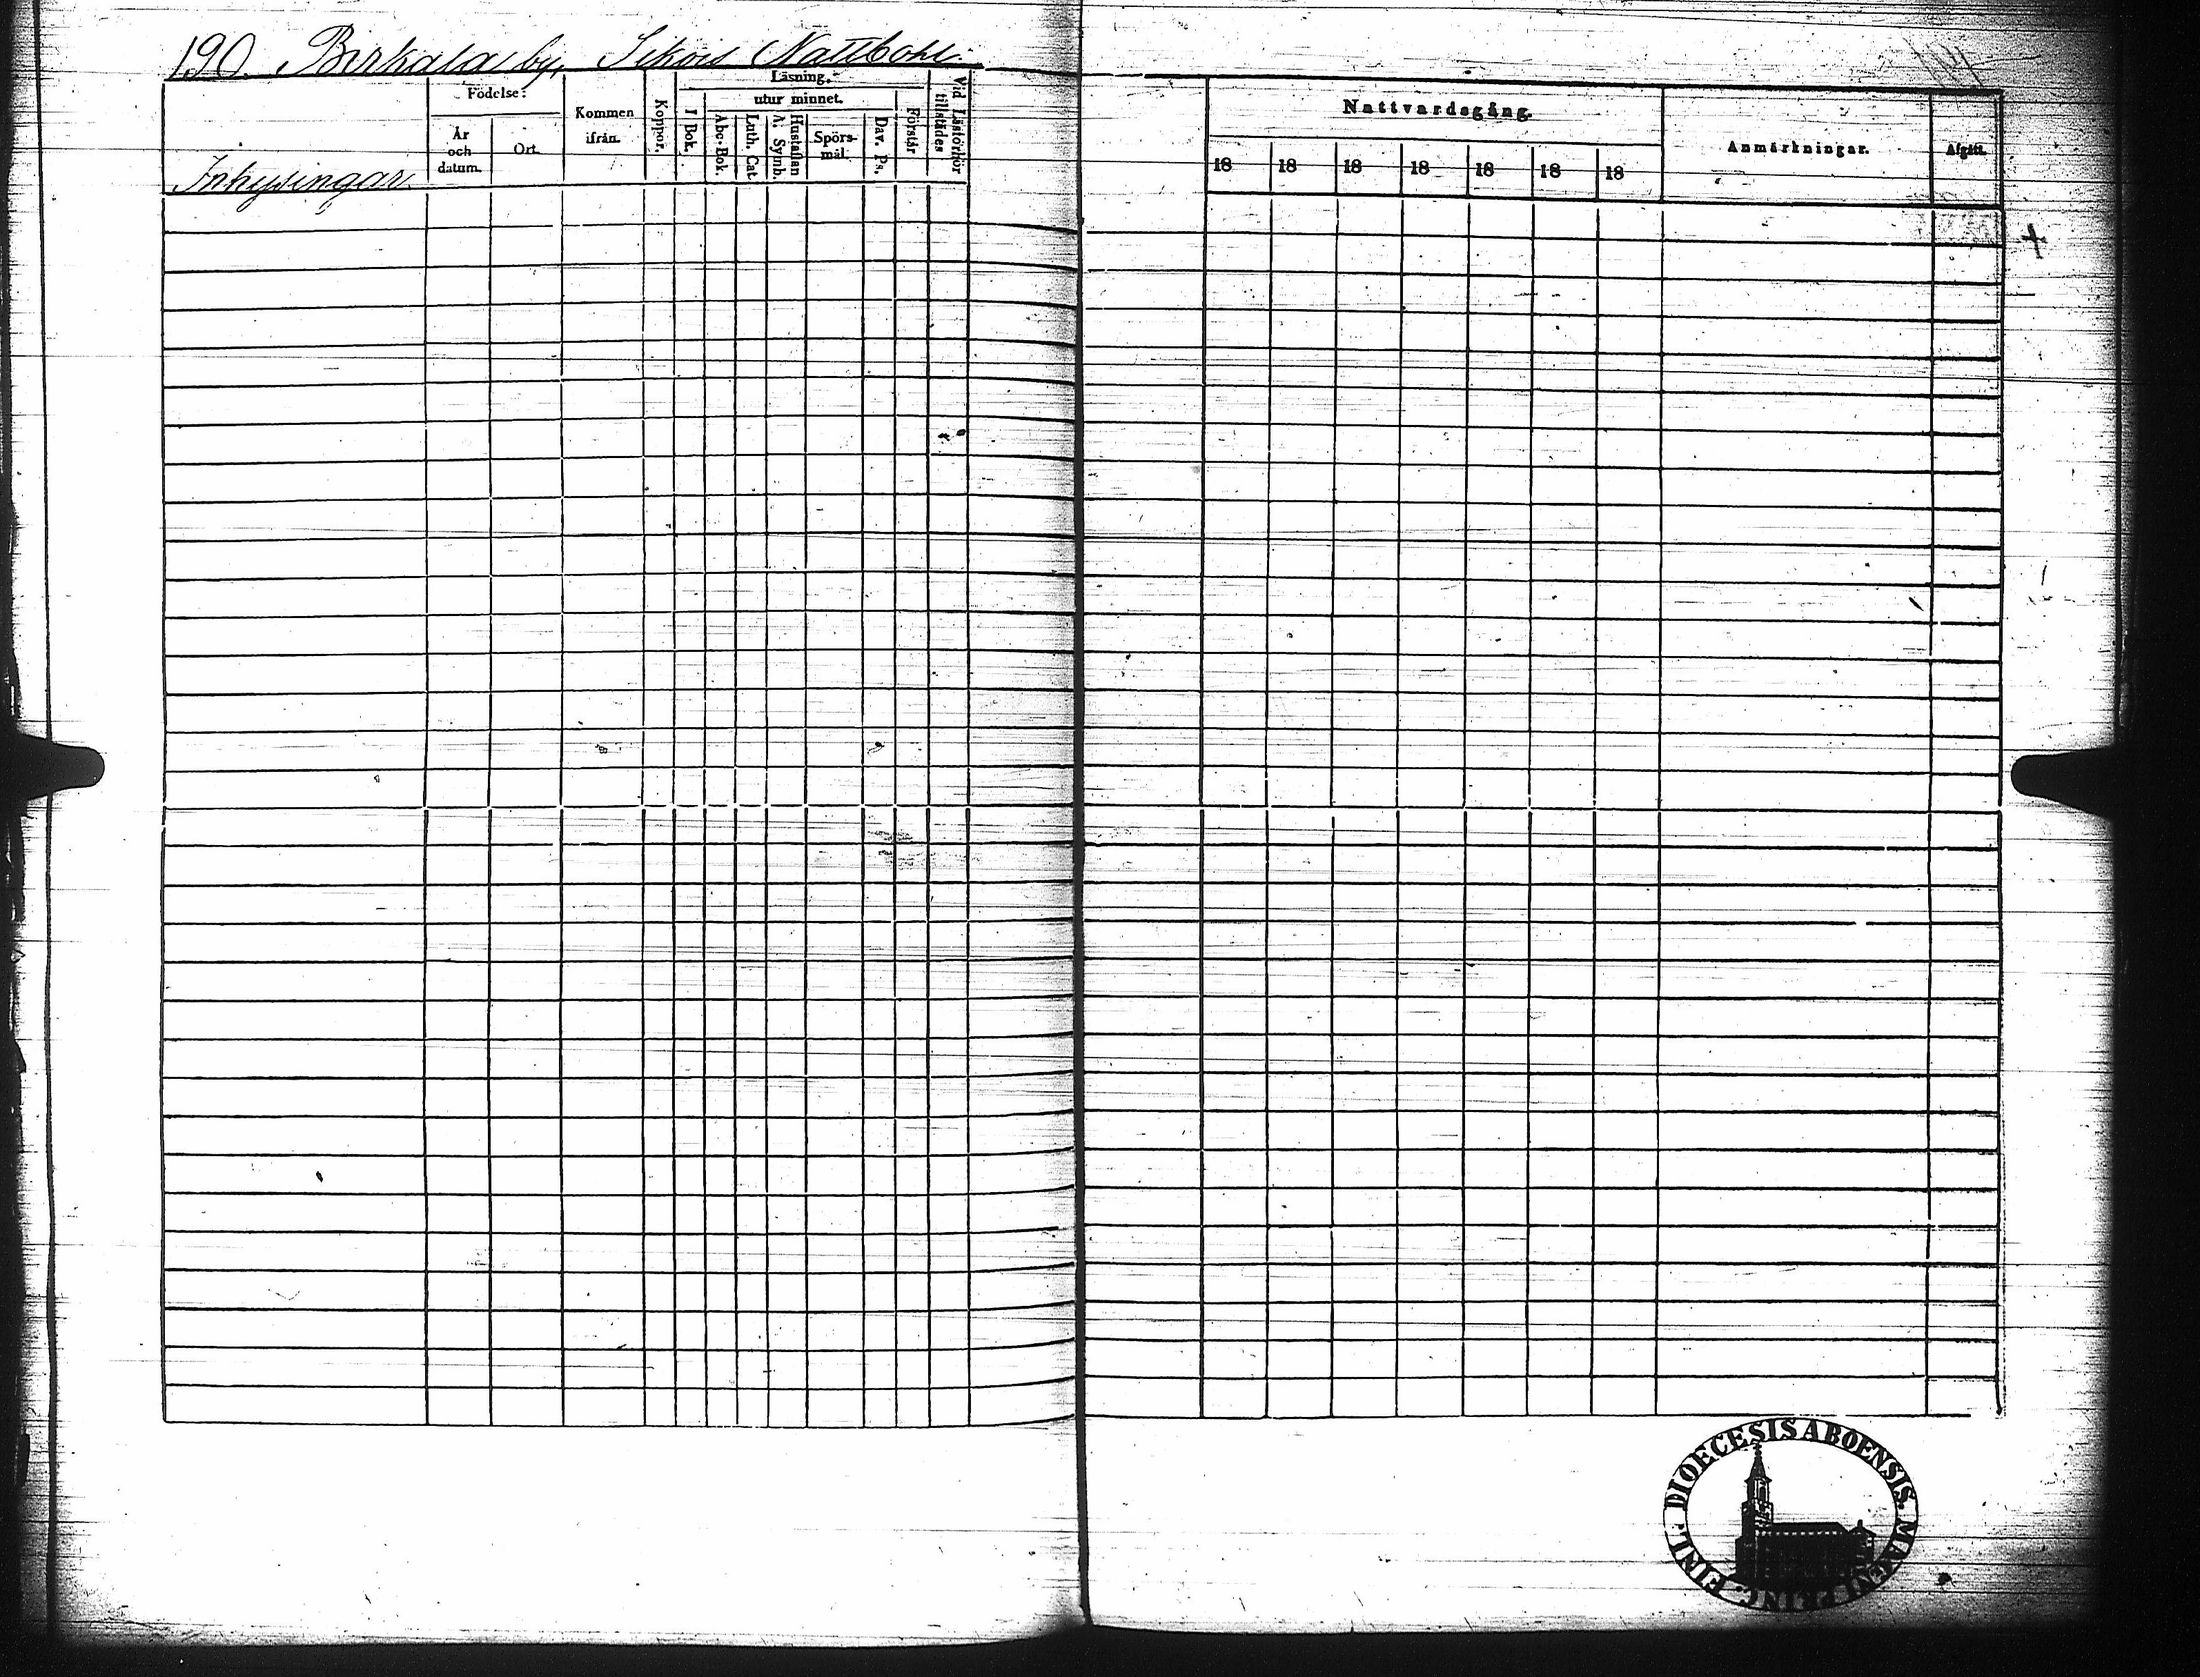 190. Birkala by, Sikois Nattbohl
Födelse:
År och datum.
Ort.
Kommen ifrån.
Koppor.
Läsning.
I Bok.
utur minnet.
Abc-Bok.
Luth. Cat.
Hustaflan A. Symb.
Spörs-mål.
Dav. Ps.
Förstår
Vid Läsförhör tillstädes
Inhysingar
Nattvardsgång.
18 18 18 18 18 18 18
Anmärkningar.
Afgått.
DIOECESIS ABOENSIS. M. PRINC. FINL.